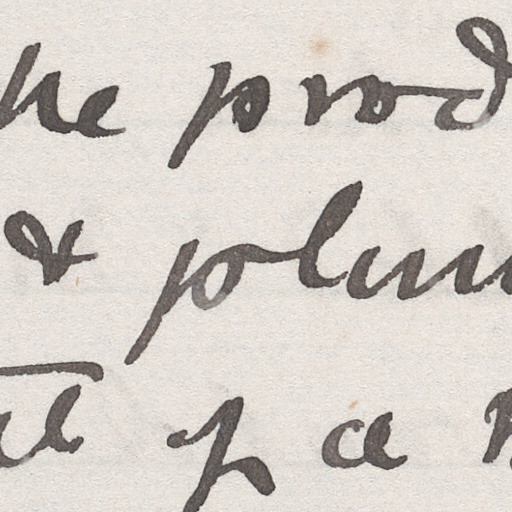 he prod
& plum
at of a